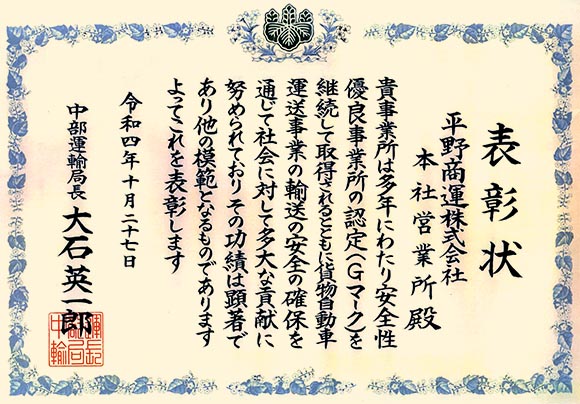 表彰状
平野商運株式会社
本社営業所殿
貴事業所は多年にわたり安全性
優良事業所の認定(Gマーク)を
継続して取得されるともに貨物自動車
運送事業の輸送の安全の確保を
通じて社会に対して多大な貢献に
努められておりその功績は顕著で
あり他の模範となるものであります
よってこれを表彰します
令和四年十月二十七日
中部運輸局長 大石英一郎
中部運輸局長